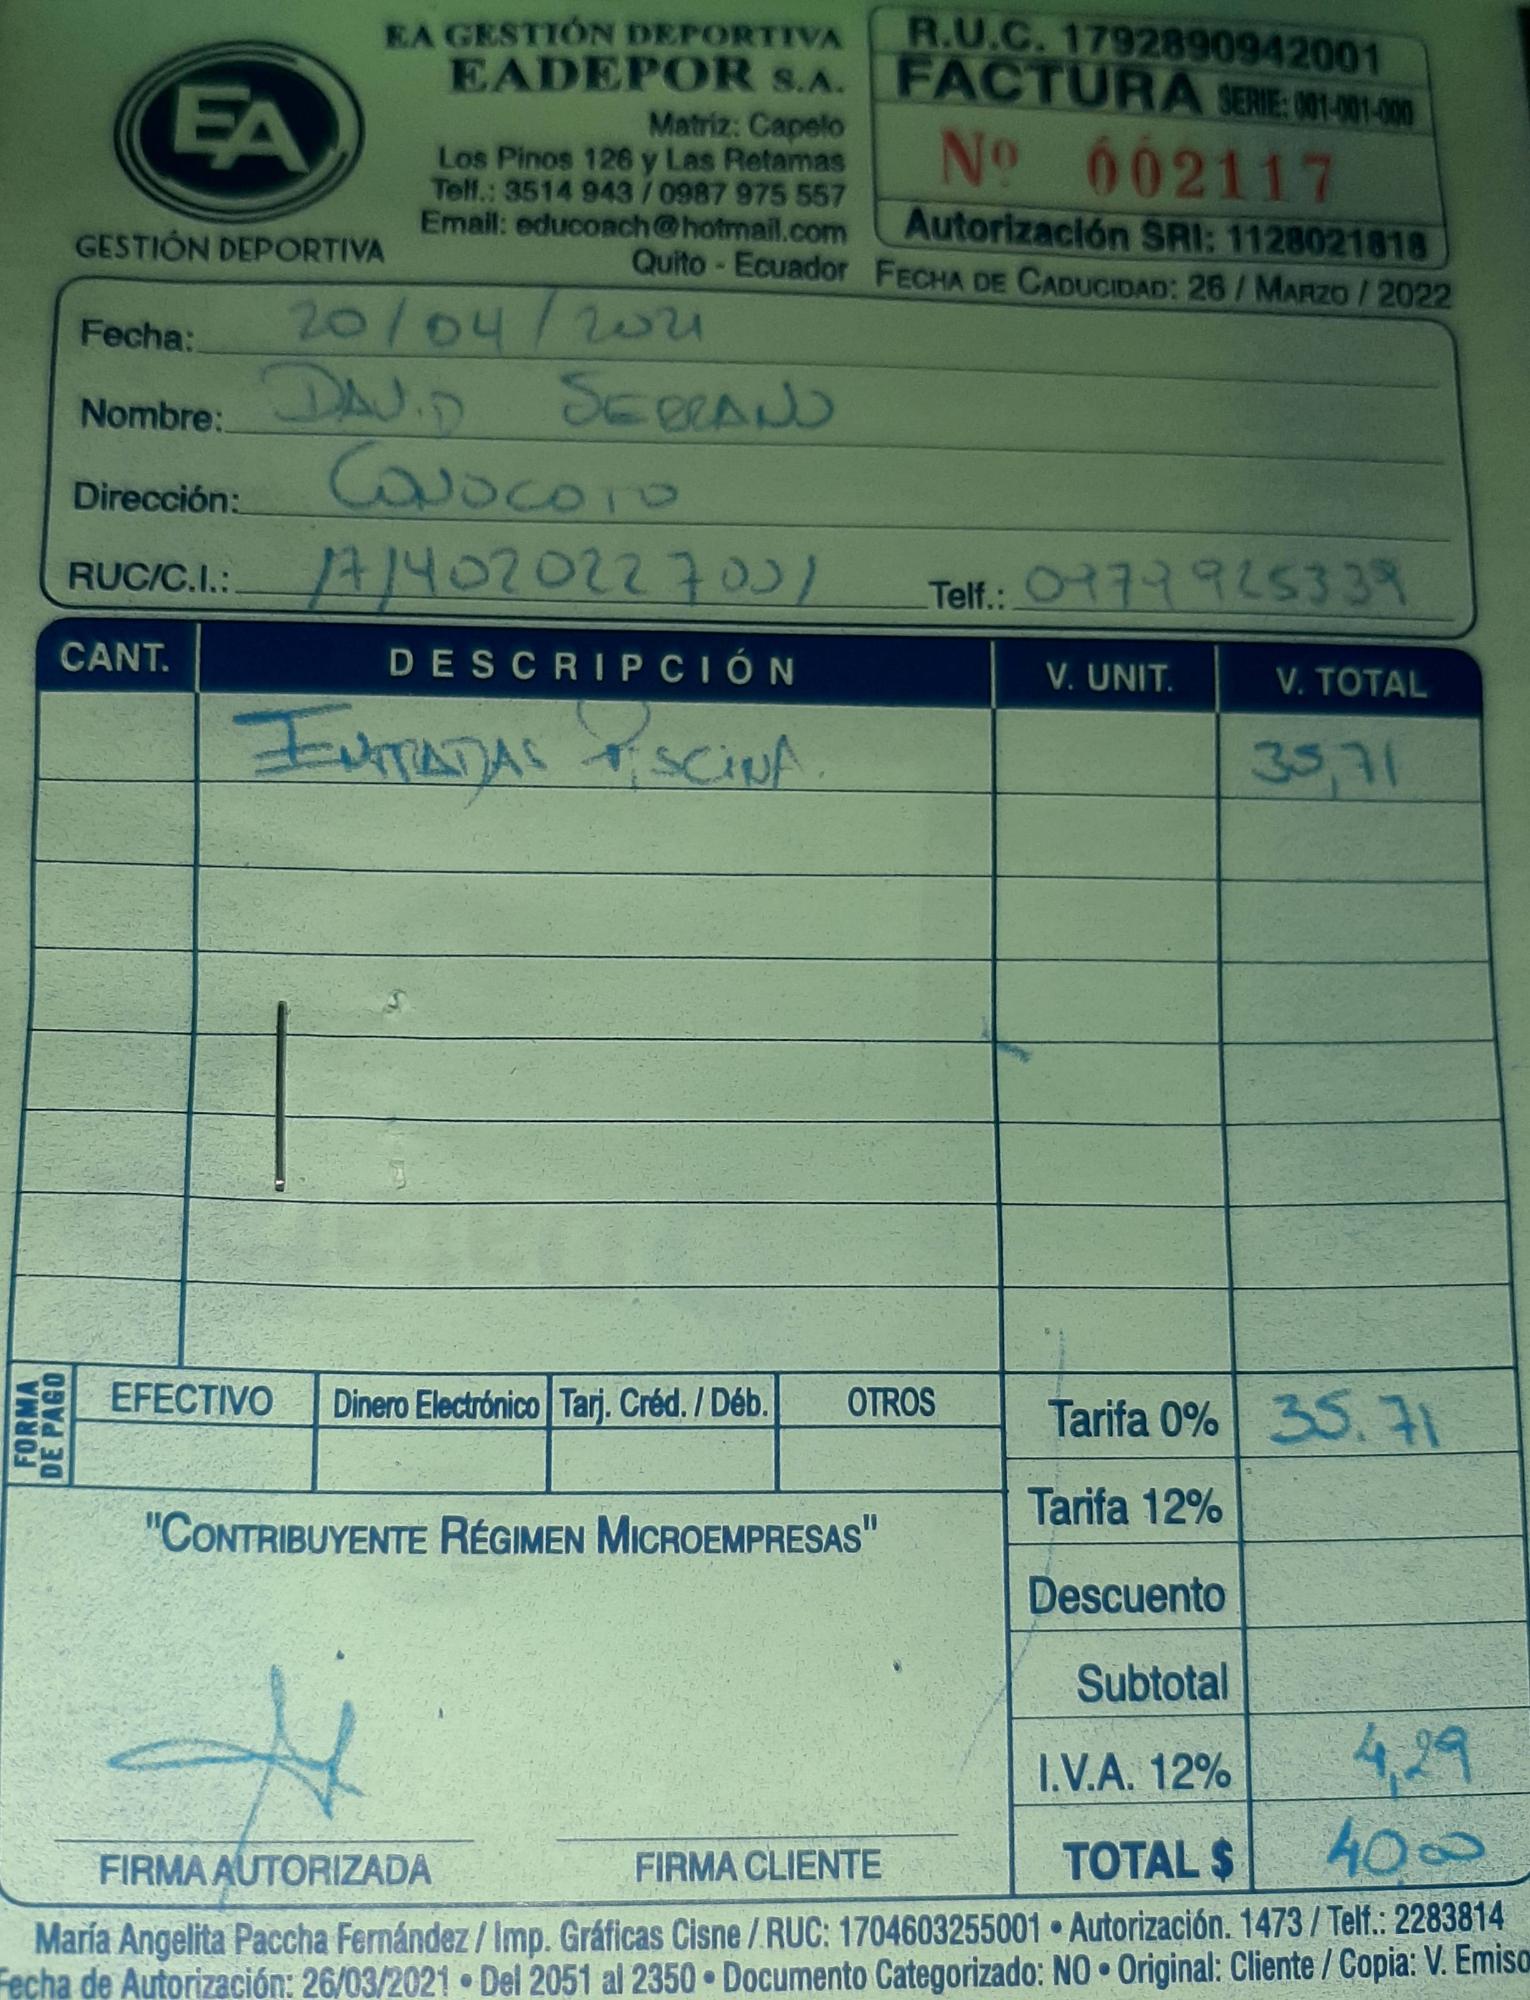 EA
GESTIÓN DEPORTIVA
EA GESTIÓN DEPORTIVA
EADEPOR S.A.
Matriz: Capelo
Los Pinos 126 y Las Retamas
Telf.: 3514 943 / 0987 975 557
Email: educoach@hotmail.com
Quito - Ecuador
R.U.C. 1792890942001
FACTURA SERIE: 001-001-000
Nº 002117
Autorización SRI: 1128021818
FECHA DE CADUCIDAD: 26 / MARZO / 2022
Fecha: 20/04/2021
Nombre: DAVID SERRANO
Dirección: CONOCOTO
RUC/C.I.: 1714020227001 Telf.: 0979925339
CANT. DESCRIPCIÓN V. UNIT. V. TOTAL
ENTRADAS PISCINA. 35,71
FORMA DE PAGO
EFECTIVO Dinero Electrónico Tarj. Créd. / Déb. OTROS
Tarifa 0% 35.71
Tarifa 12%
Descuento
Subtotal
I.V.A. 12% 4,29
TOTAL $ 40,00
"CONTRIBUYENTE RÉGIMEN MICROEMPRESAS"
FIRMA AUTORIZADA FIRMA CLIENTE
María Angelita Paccha Fernández / Imp. Gráficas Cisne / RUC: 1704603255001 • Autorización. 1473 / Telf.: 2283814
Fecha de Autorización: 26/03/2021 • Del 2051 al 2350 • Documento Categorizado: NO • Original: Cliente / Copia: V. Emiso